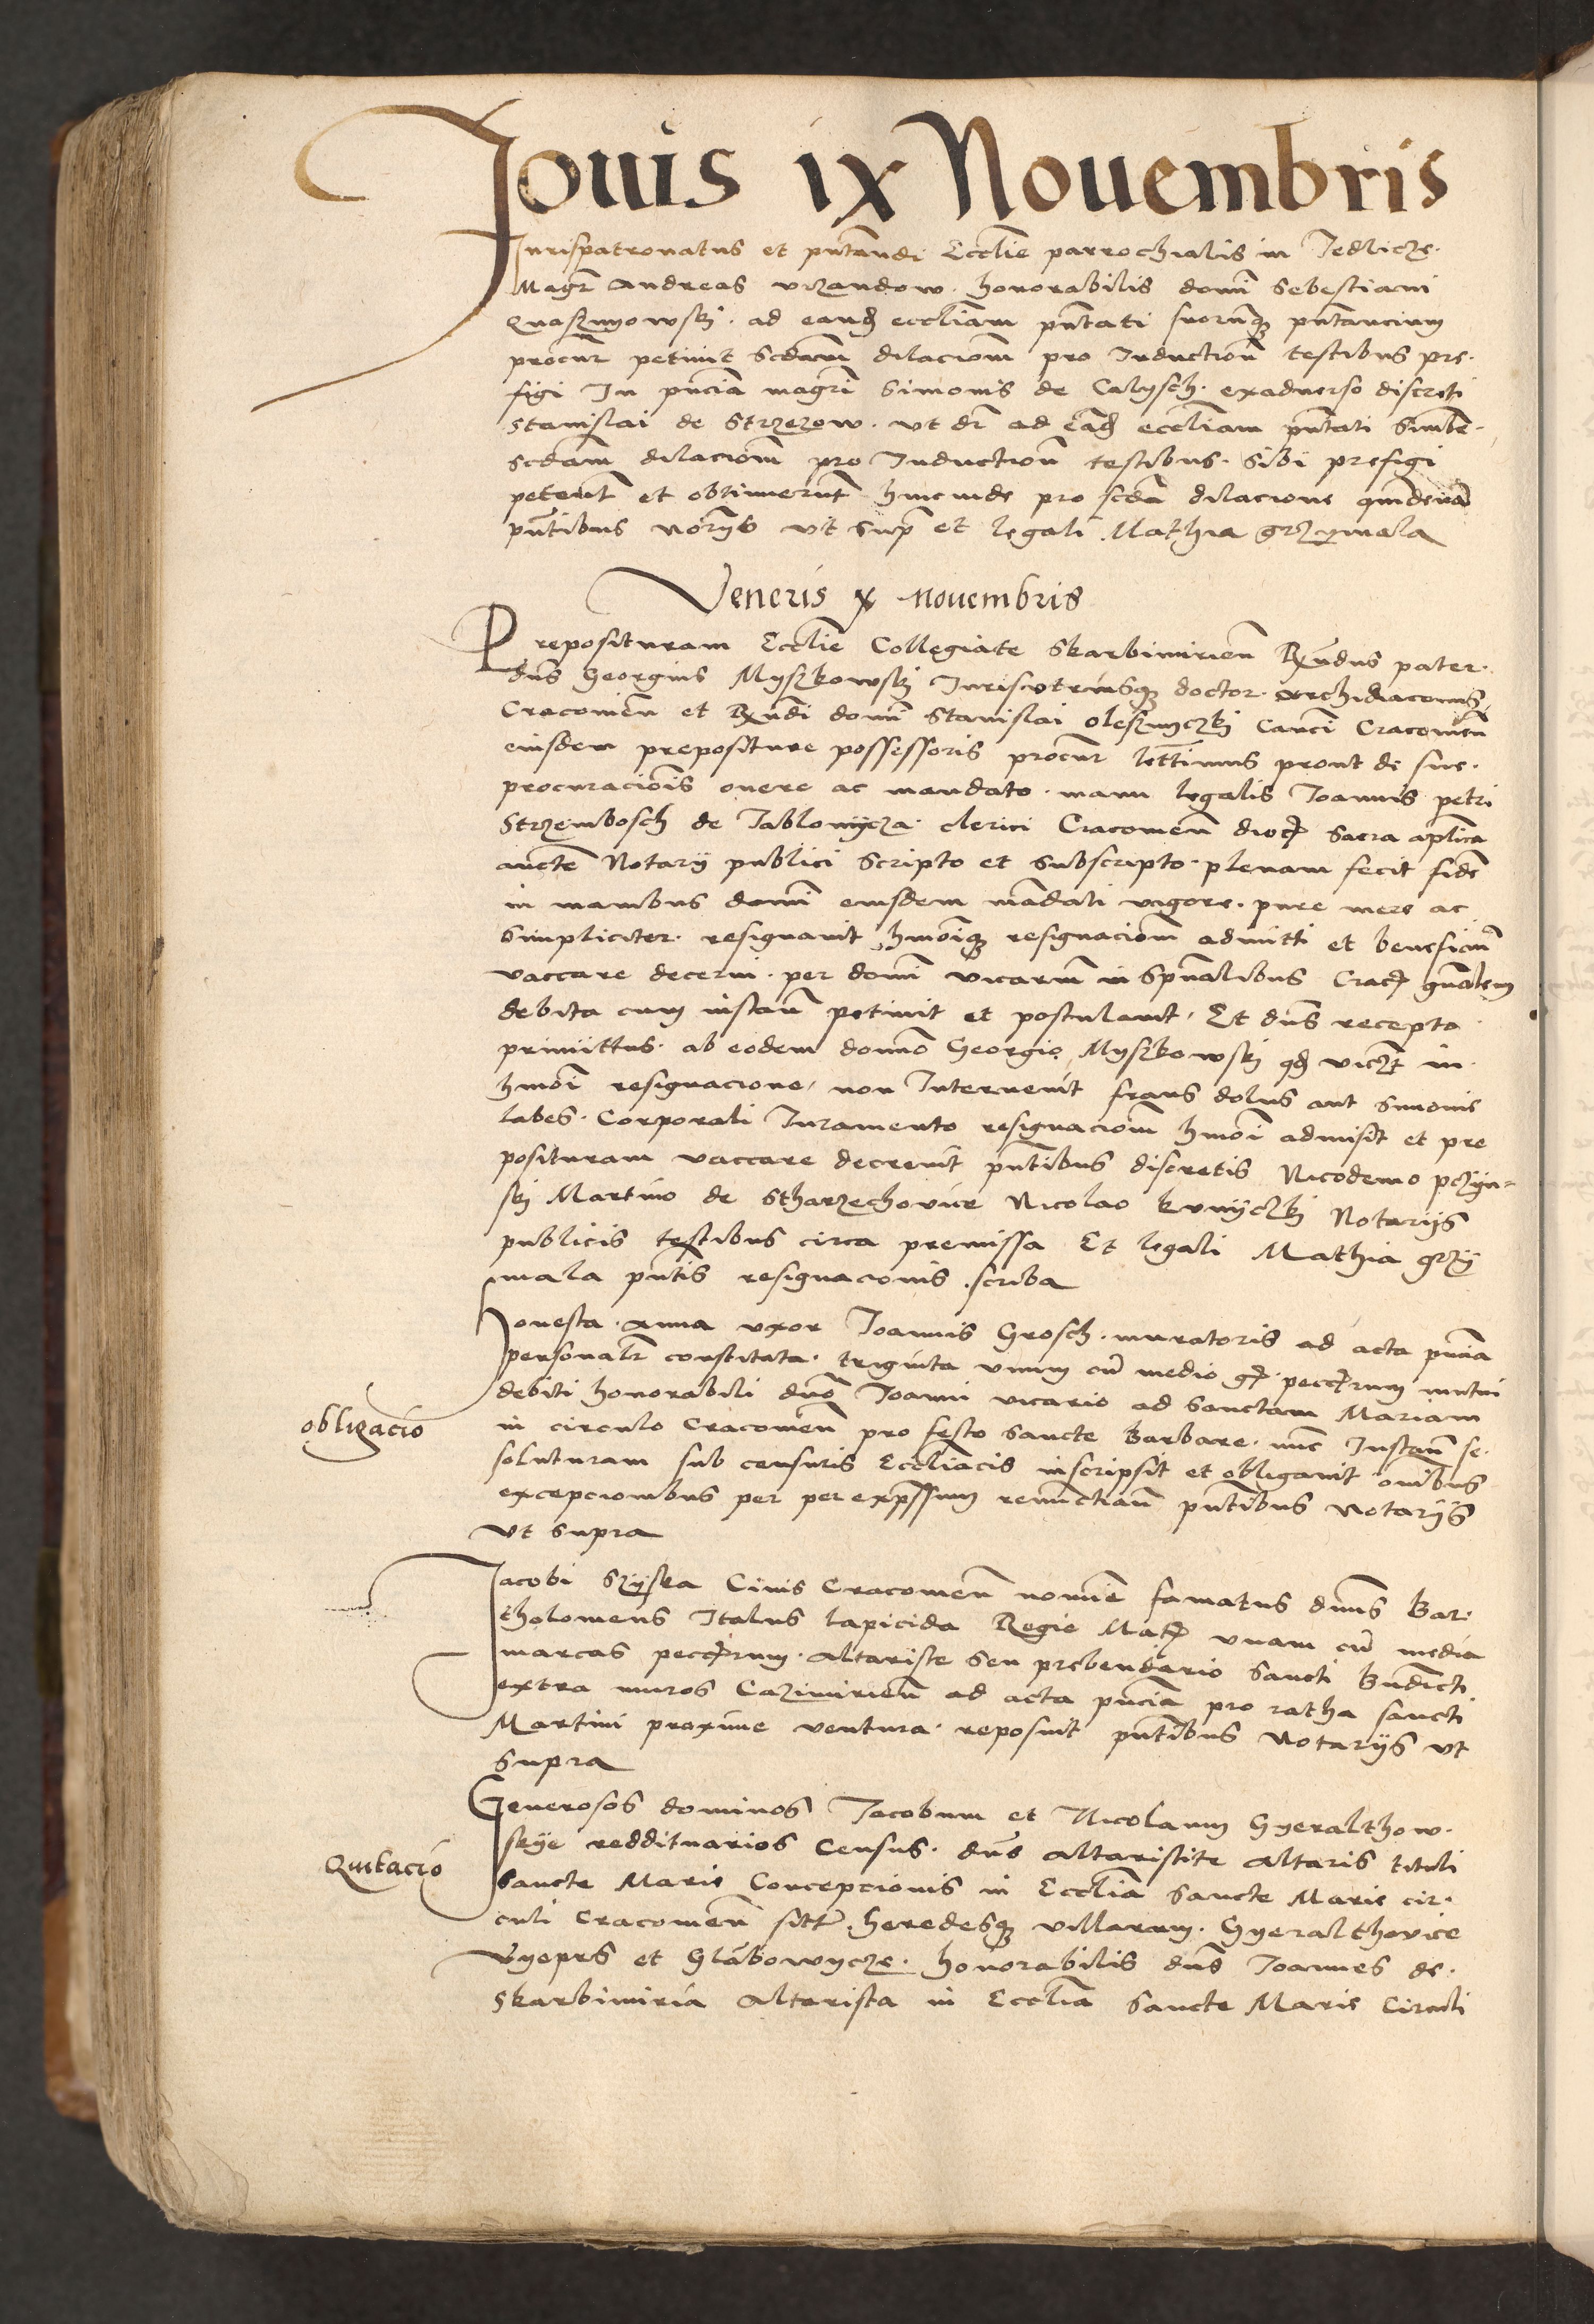 Jouis ix Nouembris
Jurispatronatus et pntandi Ecclie parrochialis in Jedlicze.
Magr Andreas vrzandow. honorabilis domi Sebestiani
Quaszmowskj. ad eand eccliam pntati suorumqz pntancium
procur petiuit scdam dilaciom pro Induction testibus pre.
figi In pncia magri Simonis de Calysch. exaduerso discreti
Stanislai de Strzezow. vt dr ad eand eccliam pntati Simbr.
scdam dilaciom pro Induction testibus. Sibi prefigi
peteint et obtinuerunt hincinde pro scda dilacione quindena
pntibus notarys vt supra et legali Mathia grzymala
Veneris x nouembris
Preposituram Ecclie Collegiate Skarbimirien Rxndus pater.
dns Georgius Myszkowskj Jurisvtriusqz doctor. Archidiaconus
Cracouien et Rxndi domi Stanislai olesznyczkj Canci Cracouien
eiusdem prepositure possessoris procur lettimus prout de sue.
procuraciois onere ac mandato. manu legalis Joannis petri
Strzembosch de Jablonycza. clerici Cracouien dioc Sacra aplica
aucte Notarij publici scripto et subscripto. plenam fecit fide
in manibus domi eiusdem madati vigore. pure mere ac
Simpliciter. resignauit hmoiqz resignaciom admitti et beneficiu
vaccare decerni. per domi vicarium in spualibus Crac gnalem
debita cum instan petiuit et postulauit. Et dns recepto
primittus. ab eodem domno Georgio Myszkowskj qd viczt in.
hmoi resignacione, non Interuenit fraus dolus aut simonis
labes. Corporali Juramento resignaciom hmoi admisit et pre
posituram vaccare decreuit pntibus discretis Nicodemo pczyn-
skj Martino de Stharzechovice Nicolao kunyczkj Notarijs
publicis testibus circa premissa Et legali Mathia grzy
mala pntis resignaconis scriba
Honesta. Anna vxor Joannis Grosch. muratoris ad acta pncia
personalr constituta. triginta vnum cu medio gr. pecc rum mutui
debiti honorabili dno Joanni vicario ad Sanctam Mariam
obligacio
in circulo Cracouien pro festo Sancte Barbare. nunc Instan se.
soluturam sub censuris Eccliacis inscripsit et obligauit oibus
excepcionibus per per expssum renuctian pntibus Notarijs
vt supra
Jacobi Szyska Ciuis Cracouien nomie famatus dnus Bar.
tholomeus Italus lapicida Regie Mat vnam cu media
marcas pecc rum. altariste seu prebendario Sancti Bndicti
extra muros Cazimirien ad acta pncia pro ratha sancti
Martini proxime ventura. reposuit pntibus Notarijs vt
supra
Generosos dominos Jacobum et Nicolaum Gyeralthow.
skye reddituarios Census. dns altaristite altaris tituli
Quitacio
Sancte Marie Concepcionis in Ecclia Sancte Marie cir.
culi Cracouien sitt. heredesqz villarum. Gyeralthovice
vyeprs et Glabowycze. honorabilis dns Joannes de.
Skarbimiria Altarista in Ecclia Sancte Marie Circuli